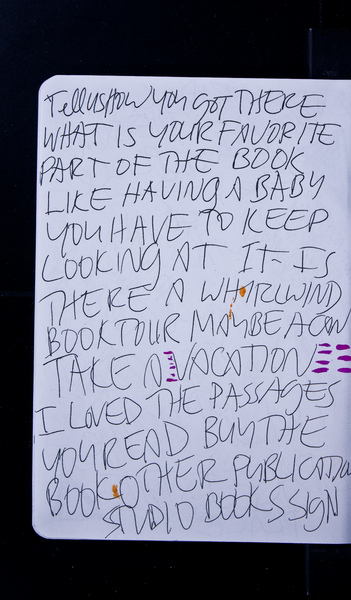 TELL US HOW YOU GOT THERE
WHAT IS YOUR FAVORITE
PART OF THE BOOK
LIKE HAVING A BABY
YOU HAVE TO KEEP
LOOKING AT IT - IS
THERE A WHIRLWIND
BOOK TOUR MAYBE A CAN
TAKE A VACATION
I LOVED THE PASSAGES
YOU READ BUY THE
BOOK OTHER PUBLICATION
STUDIO BOOKS SIGN